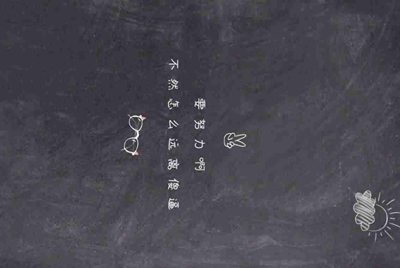 要努力啊
不然怎么远离傻逼